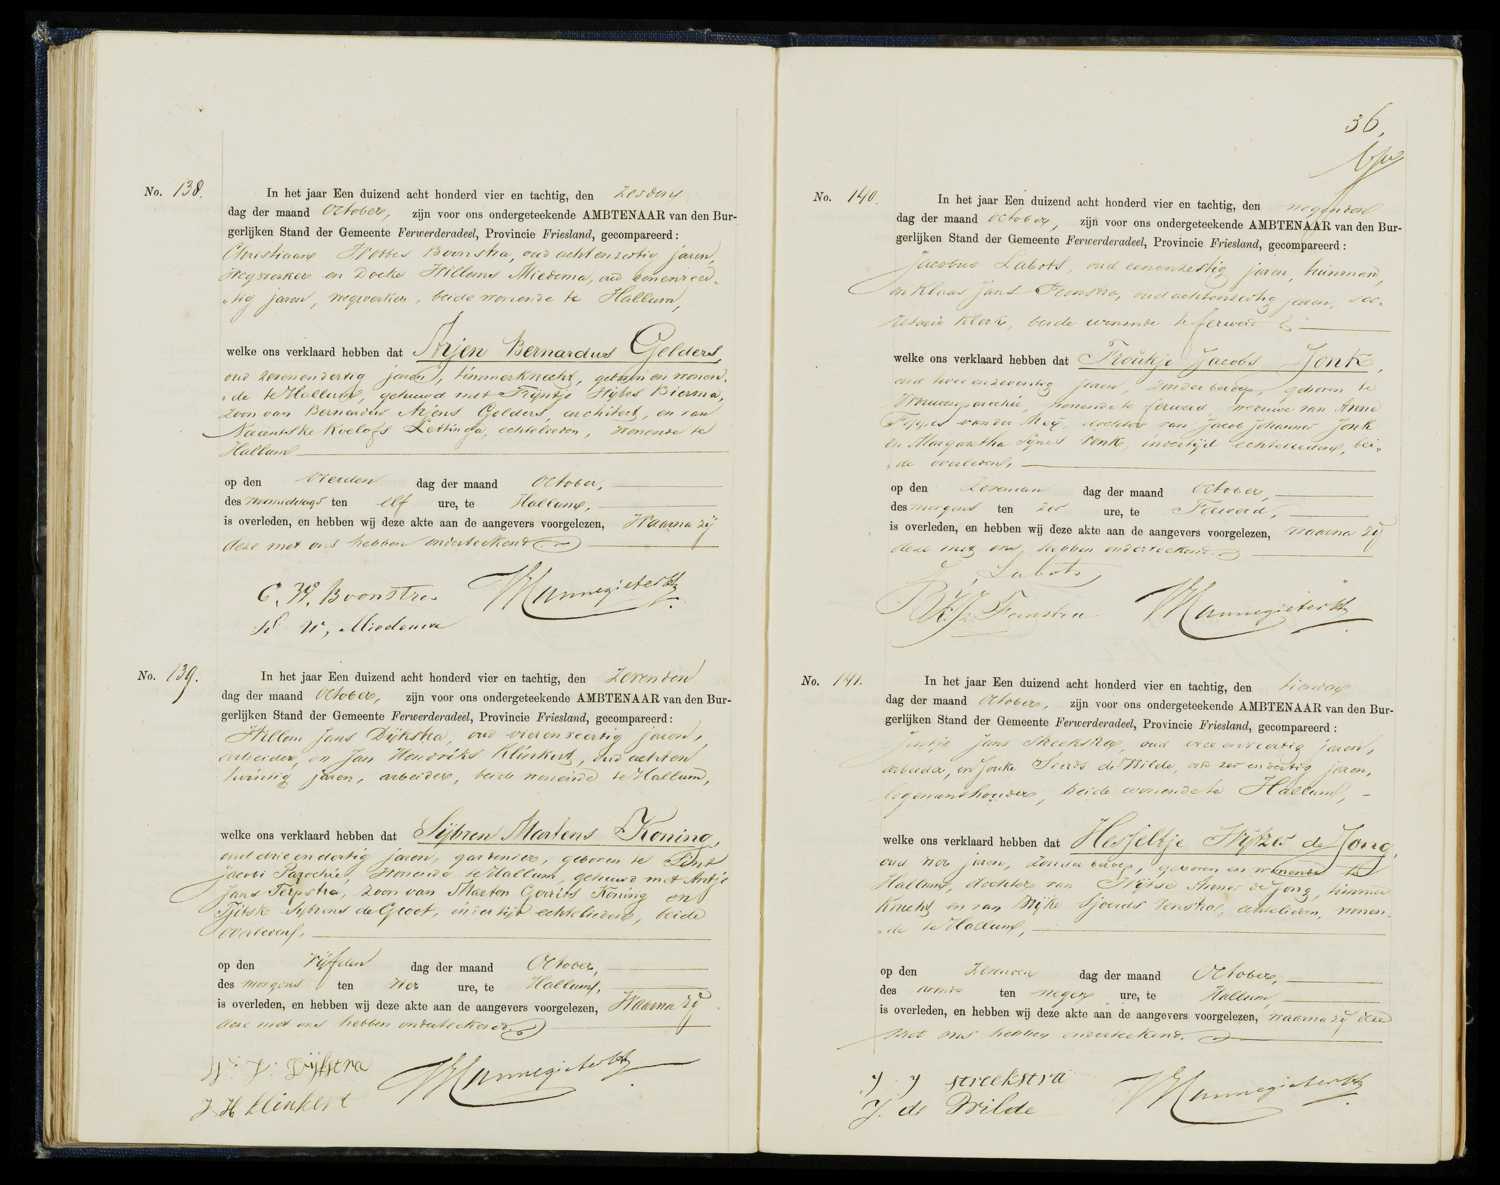 No. 138.
In het jaar Een duizend acht honderd vier en tachtig, den zesden
dag der maand October, zijn voor ons ondergeteekende AMBTENAAR van den Bur-
gerlijken Stand der Gemeente Ferwerderadeel, Provincie Friesland, gecompareerd:
Christiaan Boonstra, oud achtenzestig jaren,
wegwerker en Doeke Willems Miedema, oud eenenveer-
tig jaren, wegwerker, beide wonende te Hallum,
welke ons verklaard hebben dat Arjen Bernardus Gelders,
oud zevenendertig jaren, timmerknecht, geboren en wonen-
de te Hallum, gehuwd met Trijntje Hijltes Bierma,
zoon van Bernardus Arjens Gelders, architect, en van
Roelofs Lettinga, echtelieden, wonende te
Hallum
op den vierden dag der maand October,
des voormiddags ten elf ure, te Hallum,
is overleden, en hebben wij deze akte aan de aangevers voorgelezen, Waarna zij
deze met ons hebben onderteekend
C. W. Boonstra
D W, Miedema
No. 139.
In het jaar Een duizend acht honderd vier en tachtig, den Zevenden
dag der maand October, zijn voor ons ondergeteekende AMBTENAAR van den Bur-
gerlijken Stand der Gemeente Ferwerderadeel, Provincie Friesland, gecompareerd:
Willem Jans Dijkstra, oud vierenveertig jaren,
arbeider, en Jan Hendriks Klinkert, oud achten
twintig jaren, arbeider, beide wonende te Hallum,
welke ons verklaard hebben dat Sijbren Martens Koning,
oud drie en dertig jaren, gardenier, geboren te Sint
Jacobi Parochie, wonende te Hallum, gehuwd met Antje
Jans Terpstra, zoon van Marten Gerrits Koning en
Tjitske Sijbrens de Groot, in leven echtelieden, beide
overleden,
op den vijfden dag der maand October,
des morgens ten vier ure, te Hallum,
is overleden, en hebben wij deze akte aan de aangevers voorgelezen, Waarna zij
deze met ons hebben onderteekend
W. J. Dijkstra
J H klinkert
36.
No. 140.
In het jaar Een duizend acht honderd vier en tachtig, den negenden
dag der maand October, zijn voor ons ondergeteekende AMBTENAAR van den Bur-
gerlijken Stand der Gemeente Ferwerderadeel, Provincie Friesland, gecompareerd:
Jacobus Labots, oud eenenzestig jaren, tuinman,
en Klaas Jans Feenstra, oud achtenveertig jaren, sec-
retarie klerk, beide wonende te Ferwerd
welke ons verklaard hebben dat Froukje Jacobs Jonk,
oud twee en zeventig jaren, zonder beroep, geboren te
Vrouwenparochie, wonende te Ferwerd, weduwe van Anne
van der Meij, dochter van Jacob Johannes Jonk
en Margaretha Vonk, in leven echtelieden, bei-
de overleden,
op den Zevenden dag der maand October,
des morgens ten zes ure, te Ferwerd,
is overleden, en hebben wij deze akte aan de aangevers voorgelezen, waarna zij
deze met ons hebben onderteekend.
J. Labots
K. J. Feenstra
No. 141.
In het jaar Een duizend acht honderd vier en tachtig, den tienden
dag der maand October, zijn voor ons ondergeteekende AMBTENAAR van den Bur-
gerlijken Stand der Gemeente Ferwerderadeel, Provincie Friesland, gecompareerd:
Jans Streekstra, oud jaren,
arbeider, en Jouke Sierds de Wilde, oud zes en dertig jaren,
logementhouder, beide wonende te Hallum,
welke ons verklaard hebben dat Hesseltje Wijtzes de Jong,
oud vier jaren, zonder beroep, geboren en wonende te
Hallum, dochter van Wijtse de Jong, timmer
knecht, en van Sjoerds echtelieden, wonen-
de te Hallum,
op den Zevenden dag der maand October,
des avonds ten negen ure, te Hallum,
is overleden, en hebben wij deze akte aan de aangevers voorgelezen, waarna zij deze
met ons hebben onderteekend.
J J streekstra
J. de Wilde